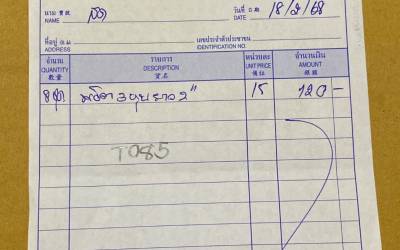 นาม 寶號 NAME สด วันที่ 日期 DATE 18/2/68
ที่อยู่ 住址 ADDRESS เลขประจำตัวประชาชน IDENTIFICATION NO.
จำนวน รายการ หน่วยละ จำนวนเงิน
QUANTITY DESCRIPTION UNIT PRICE AMOUNT
數量 貨名 價位 銀額
8 3 หุน ยาว 2" 15 120 -
T085